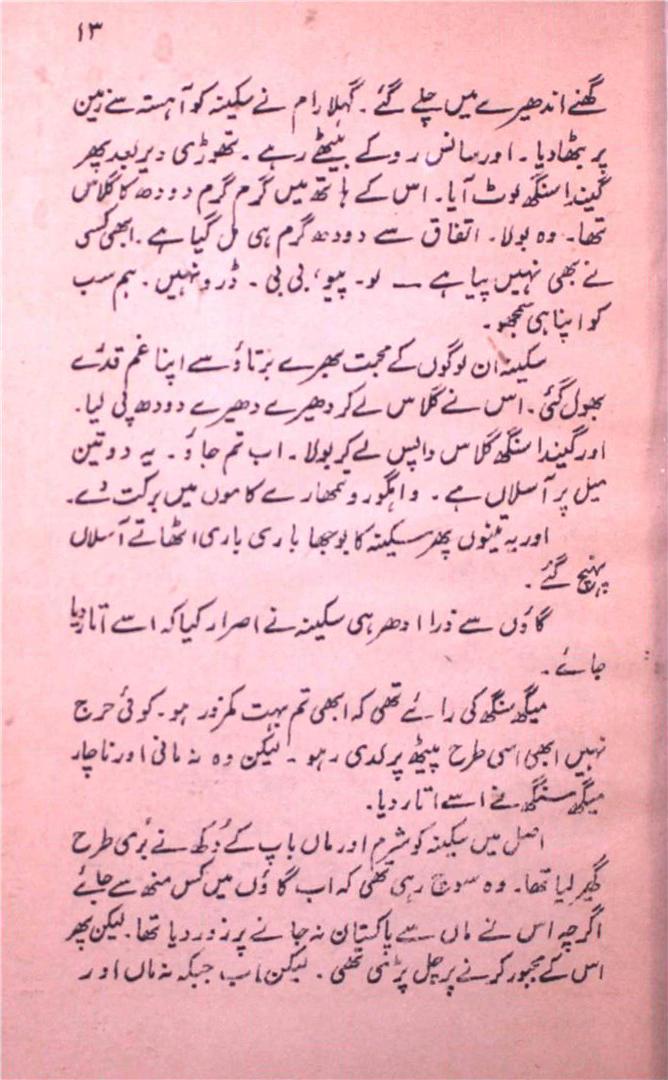 ۱۳
گھنے اندھیرے میں چلے گئے ۔ گہلا رام نے سکینہ کو آہستہ سے زمین
پر بٹھا دیا ۔ اور سانس روکے بیٹھے رہے ۔ تھوڑی دیر بعد پھر
گیندا سنگھ لوٹ آیا ۔ اس کے ہاتھ میں گرم گرم دودھ کا گلاس
تھا ۔ وہ بولا ۔ اتفاق سے دودھ گرم ہی مل گیا ہے ۔ ابھی کسی
نے بھی نہیں پیا ہے — لو ۔ پیو ، بی بی ۔ ڈرو نہیں ۔ ہم سب
کو اپنا ہی سمجھو ۔
سکینہ ان لوگوں کے محبت بھرے برتاؤ سے اپنا غم قدرے
بھول گئی ۔ اس نے گلاس لے کر دھیرے دھیرے دودھ پی لیا ۔
اور گیندا سنگھ گلاس واپس لے کر بولا ۔ اب تم جاؤ ۔ یہ دو تین
میل پر آسلاں ہے ۔ واہگورو تمھارے کاموں میں برکت دے ۔
اور یہ تینوں پھر سکینہ کا بوجھا باری باری اٹھاتے آسلاں
پہنچ گئے ۔
گاؤں سے ذرا ادھر ہی سکینہ نے اصرار کیا کہ اسے اتار دیا
جائے ۔
میگھ سنگھ کی رائے تھی کہ ابھی تم بہت کمزور ہو ۔ کوئی حرج
نہیں ابھی اسی طرح پیٹھ پر لدی رہو ۔ لیکن وہ نہ مانی اور ناچار
میگھ سنگھ نے اسے اتار دیا ۔
اصل میں سکینہ کو شرم اور ماں باپ کے دُکھ نے بُری طرح
گھیر لیا تھا ۔ وہ سوچ رہی تھی کہ اب گاؤں میں کس منھ سے جائے
اگرچہ اس نے ماں سے پاکستان نہ جانے پر زور دیا تھا ۔ لیکن پھر
اس کے مجبور کرنے پر چل پڑنی تھی ۔ لیکن اب جبکہ نہ ماں اور